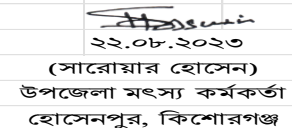 ২২.০৮.২০২৩
(সারোয়ার হোসেন)
উপজেলা মৎস্য কর্মকর্তা
হোসেনপুর, কিশোরগঞ্জ